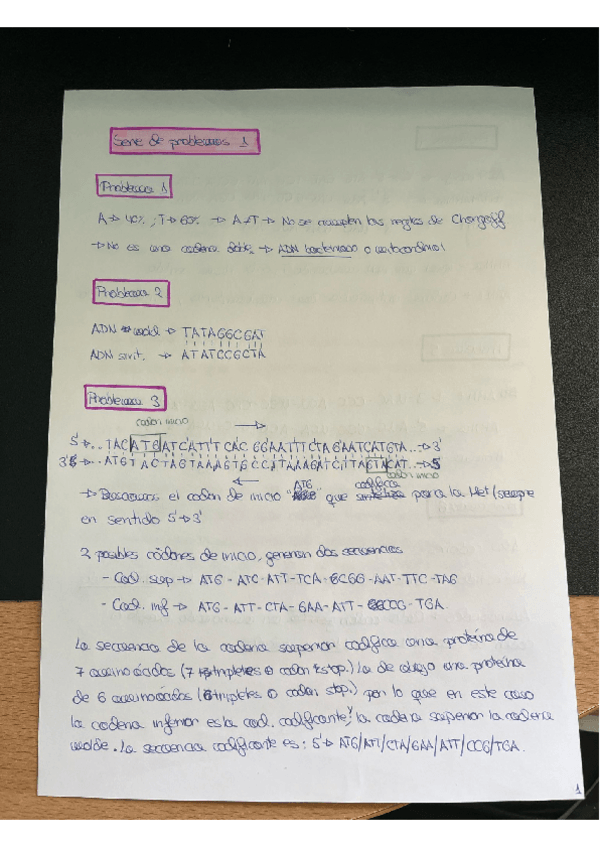 Serie de problemas 1
Problema 1
A → 40%, T → 60% → A≠T → No se cumplen las reglas de Chargaff
→ No es una cadena doble → ADN bacteriano o mitocondrial
Problema 2
ADN mold → TATAGGCGAT
ADN sint. → ATATCCGCTA
Problema 3
codón inicio →
5' → .. TAC ATG ATCATTTCAC GGAATTTCTAGAATCATGTA .. → 3'
3' ← .. ATGTACTAGTAAAGTGCCATAAAGATCTTAGTACAT .. → 5'
← codón inicio
→ Buscamos el codón de inicio "ATG" que codifica para la Met (siempre
en sentido 5' → 3'
2 posibles codones de inicio, generan dos secuencias
- Cad. sup → ATG - ATC - ATT - TCA - CGG - AAT - TTC - TAG
- Cad. inf → ATG - ATT - CTA - GAA - ATT - CCG - TGA
La secuencia de la cadena superior codifica una proteína de
7 aminoácidos (7 tripletes codon stop.) la de abajo una proteína
de 6 aminoácidos (6 tripletes codon stop.) por lo que en este caso
la cadena inferior es la cad. codificante y la cadena superior la cadena
molde. La secuencia codificante es: 5' → ATG/ATT/CTA/GAA/ATT/CCG/TGA.
1